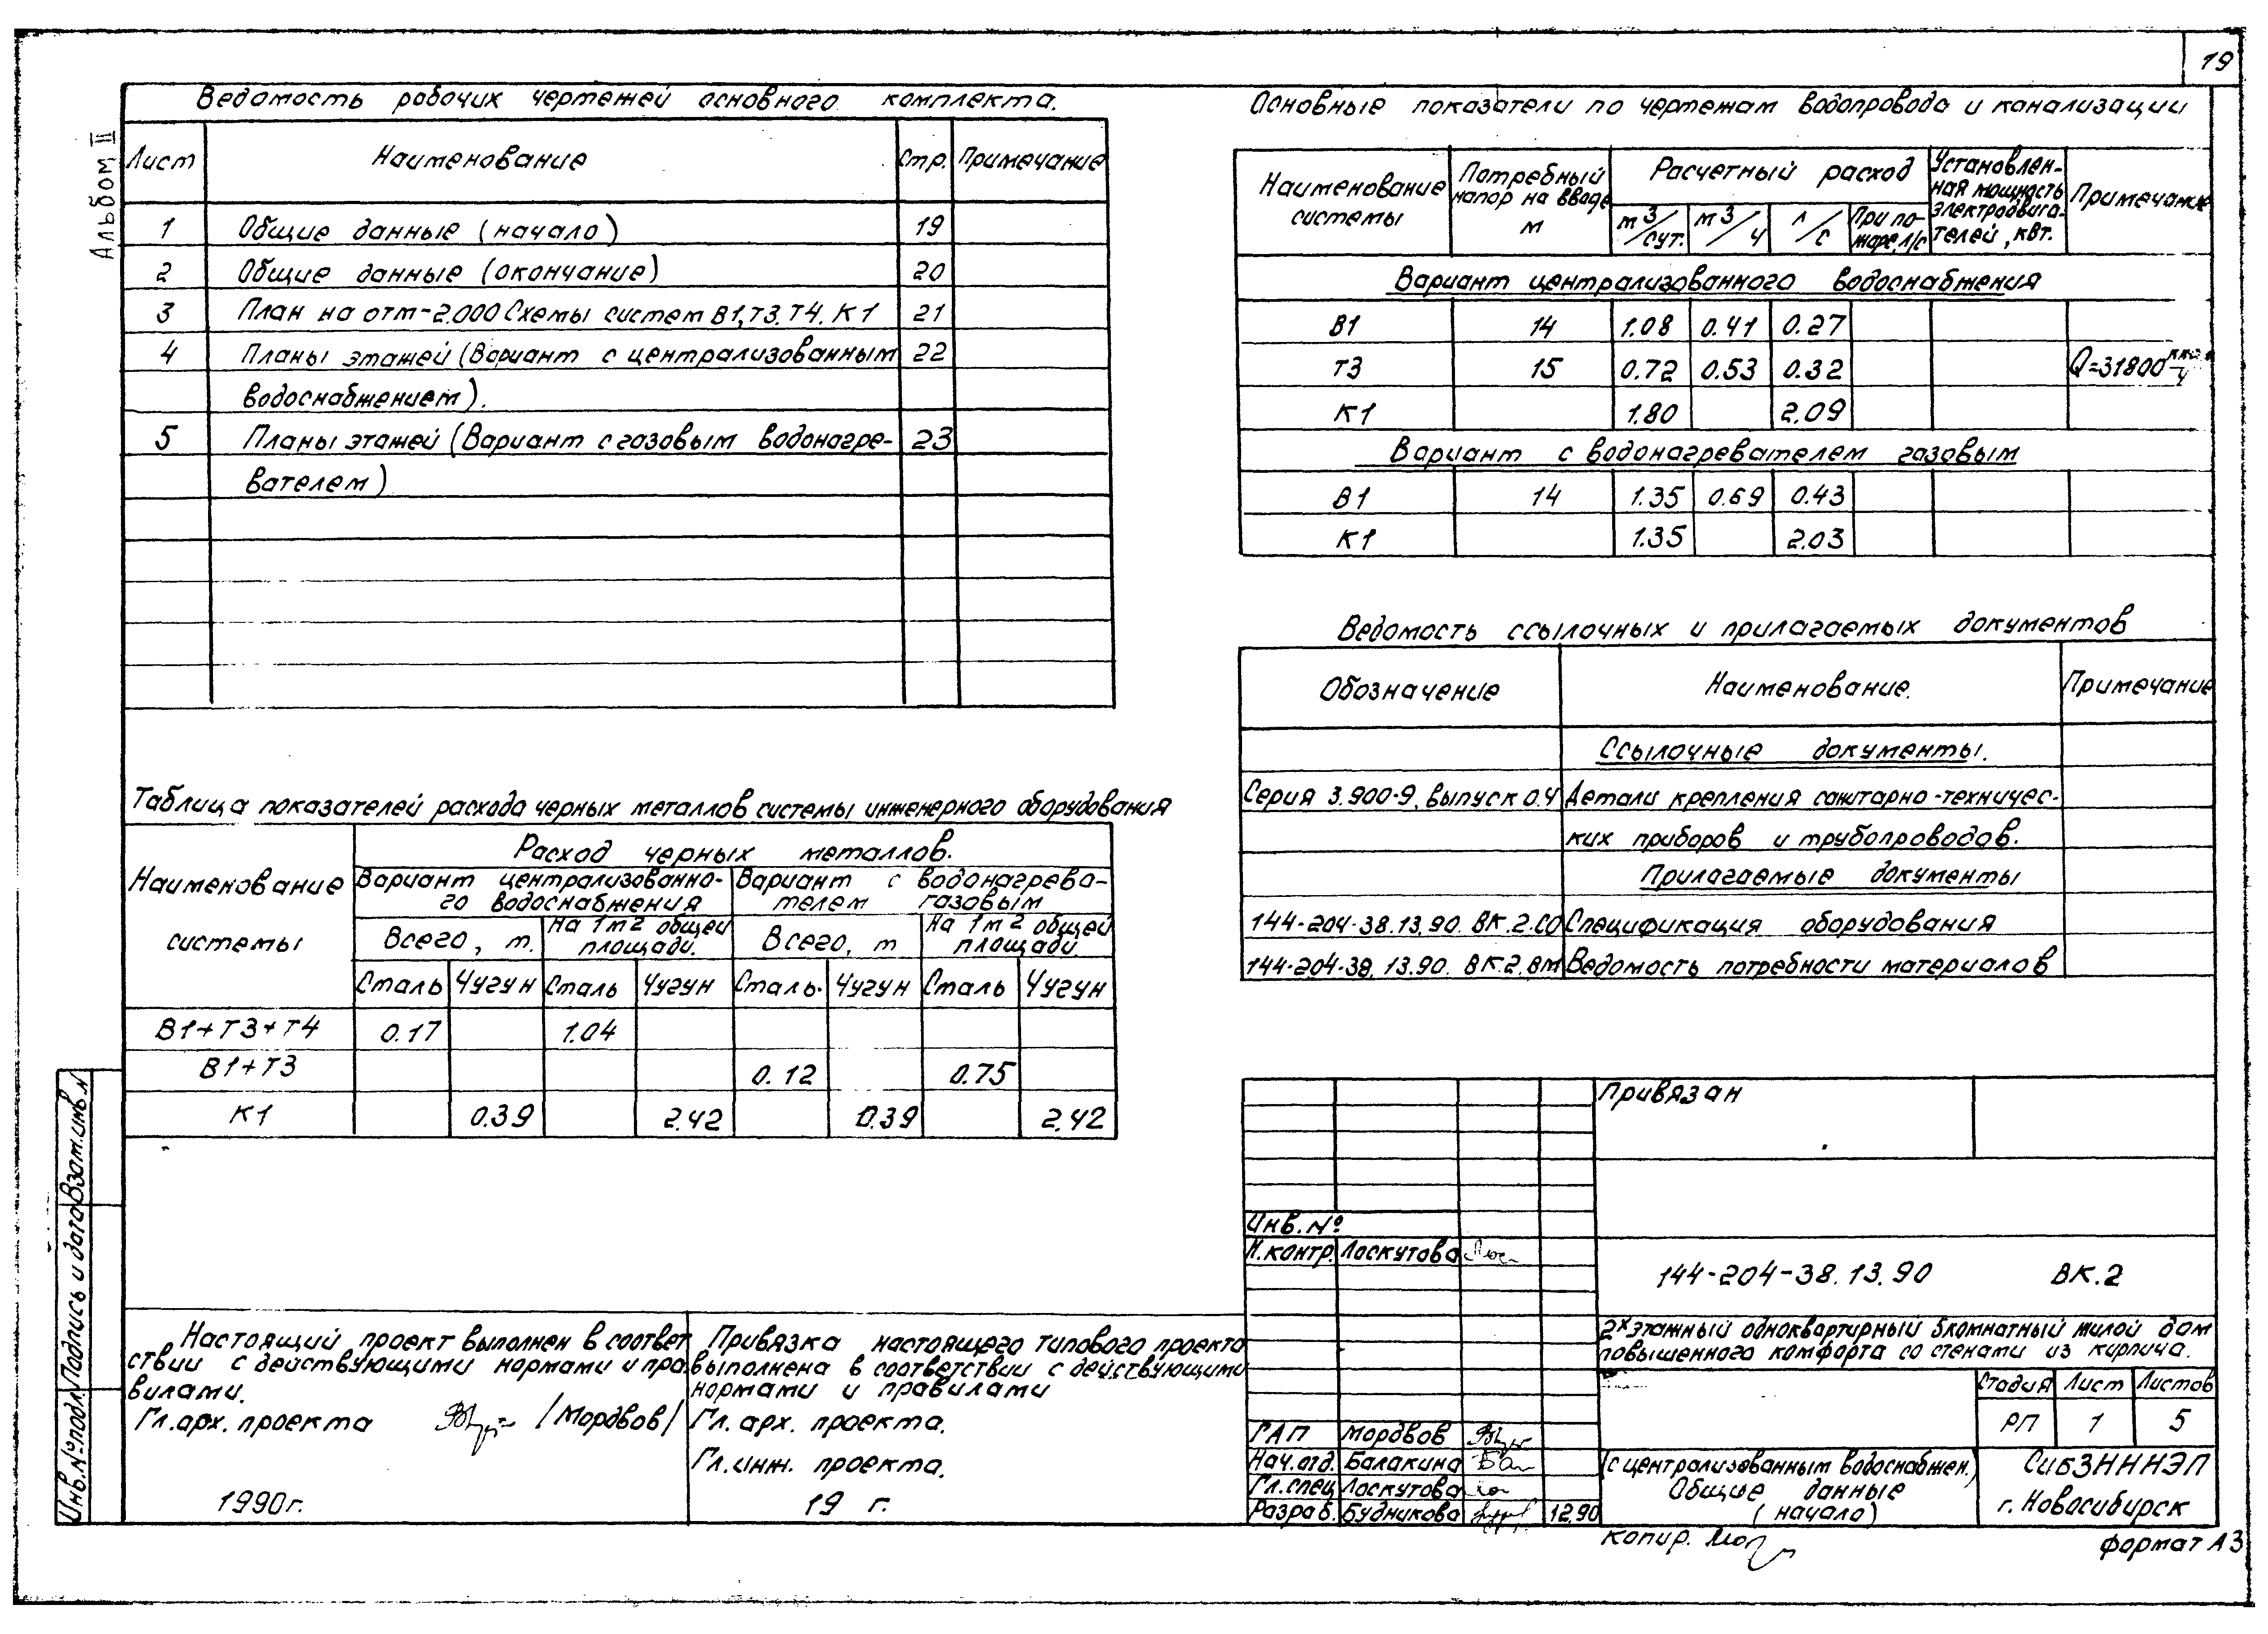 19
Альбом III
Ведомость рабочих чертежей основного комплекта.
Лист Наименование Стр. Примечание
1 Общие данные (начало) 19
2 Общие данные (окончание) 20
3 План на отм-2.000 Схемы систем В1,Т3.Т4.К1 21
4 Планы этажей (Вариант с централизованным 22
водоснабжением).
5 Планы этажей (Вариант с газовым водонагре- 23
вателем)
Таблица показателей расхода черных металлов системы инженерного оборудования
Наименование системы
Расход черных металлов.
Вариант централизованно-
го водоснабжения
Вариант с водонагрева-
телем газовым
Всего, т. На 1м2 общей площади. Всего, т На 1м2 общей площади.
Сталь Чугун Сталь Чугун Сталь. Чугун Сталь Чугун
В1+Т3+Т4 0.17 1.04
В1+Т3 0.12 0.75
К1 0.39 2.42 0.39 2.42
Основные показатели по чертежам водопровода и канализации
Наименование системы
Потребный напор на вводе м
Расчетный расход
м3/сут. м3/ч л/с При по-
жаре, л/с
Установлен-
ная мощность
электродвига-
телей, квт.
Примечание
Вариант централизованного водоснабжения
В1 14 1.08 0.41 0.27
Т3 15 0.72 0.53 0.32 Q=31800 ккал/ч
К1 1.80 2.09
Вариант с водонагревателем газовым
В1 14 1.35 0.69 0.43
К1 1.35 2.03
Ведомость ссылочных и прилагаемых документов
Обозначение Наименование. Примечание
Ссылочные документы.
Серия 3.900-9, выпуск 0.4 Детали крепления санитарно-техничес-
ких приборов и трубопроводов.
Прилагаемые документы
144-204-38.13.90. ВК.2.СО Спецификация оборудования
144-204-38.13.90. ВК.2.ВМ Ведомость потребности материалов
Настоящий проект выполнен в соответ
ствии с действующими нормами и пра
вилами.
Гл.арх. проекта /Мордвов/
1990г.
Привязка настоящего типового проекта
выполнена в соответствии с действующими
нормами и правилами
Гл. арх. проекта.
Гл.инж. проекта.
19 г.
Привязан
Инв.№
Н.контр. Лоскутова
144-204-38.13.90 ВК.2
2х этажный одноквартирный 5комнатный жилой дом
повышенного комфорта со стенами из кирпича.
Стадия Лист Листов
РП 1 5
ГАП Мордвов
Нач.отд. Балакина
Гл.спец Лоскутова
Разраб. Будникова 12.90
(с централизованным водоснабжен.)
Общие данные
(начало)
СибЗНИИЭП
г. Новосибирск
Копир.
формат А3
Инв.№подл. Подпись и дата Взам.инв.N